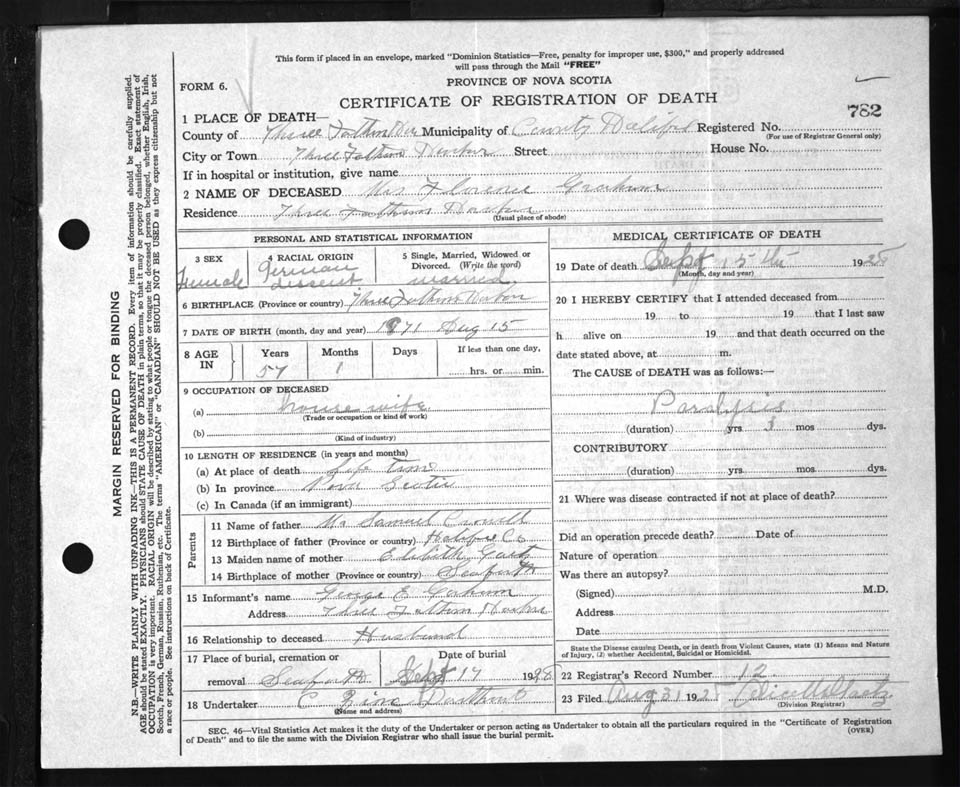 This form if placed in an envelope, marked "Dominion Statistics—Free, penalty for improper use, $300," and properly addressed
will pass through the Mail "FREE"
FORM 6.
PROVINCE OF NOVA SCOTIA
CERTIFICATE OF REGISTRATION OF DEATH
782
1 PLACE OF DEATH—
County of Three Fathom Har Municipality of County Halifax Registered No.
(For use of Registrar General only)
City or Town Three Fathom Harbor Street House No.
If in hospital or institution, give name
2 NAME OF DECEASED Mrs Florence Graham
Residence Three Fathom Harbor
(Usual place of abode)
PERSONAL AND STATISTICAL INFORMATION
3 SEX
Female
4 RACIAL ORIGIN
German
descent
5 Single, Married, Widowed or
Divorced. (Write the word)
married
6 BIRTHPLACE (Province or country) Three Fathom Harbor
7 DATE OF BIRTH (month, day and year) 1871 Aug 15
8 AGE IN
Years Months Days If less than one day,
57 1 hrs. or min.
9 OCCUPATION OF DECEASED
(a) house wife
(Trade or occupation or kind of work)
(b)
(Kind of industry)
10 LENGTH OF RESIDENCE (in years and months)
(a) At place of death Life time
(b) In province Nova Scotia
(c) In Canada (if an immigrant)
Parents
11 Name of father Mr Samuel Crowell
12 Birthplace of father (Province or country) Halifax Co
13 Maiden name of mother Elibith Gaetz
14 Birthplace of mother (Province or country) Seaforth
15 Informant's name George E Graham
Address Three Fathom Harbor
16 Relationship to deceased Husband
17 Place of burial, cremation or
removal Seaforth
Date of burial
Sept 17 1928
18 Undertaker Dartmouth
(Name and address)
MEDICAL CERTIFICATE OF DEATH
19 Date of death Sept 15th 1928
(Month, day and year)
20 I HEREBY CERTIFY that I attended deceased from
19 to 19 that I last saw
h alive on 19 and that death occurred on the
date stated above, at m.
The CAUSE of DEATH was as follows:—
Paralysis
(duration) yrs 3 mos dys.
CONTRIBUTORY
(duration) yrs mos dys.
21 Where was disease contracted if not at place of death?
Did an operation precede death? Date of
Nature of operation
Was there an autopsy?
(Signed) M.D.
Address
Date
State the Disease causing Death, or in death from Violent Causes, state (1) Means and Nature
of Injury, (2) whether Accidental, Suicidal or Homicidal.
22 Registrar's Record Number 12
23 Filed Aug 31 192
(Division Registrar)
SEC. 46—Vital Statistics Act makes it the duty of the Undertaker or person acting as Undertaker to obtain all the particulars required in the "Certificate of Registration
of Death" and to file the same with the Division Registrar who shall issue the burial permit.
(OVER)
MARGIN RESERVED FOR BINDING
N.B.—WRITE PLAINLY WITH UNFADING INK—THIS IS A PERMANENT RECORD. Every item of information should be carefully supplied.
AGE should be stated EXACTLY. PHYSICIANS should STATE CAUSE OF DEATH in plain terms, so that it may be properly classified. Exact statement of
OCCUPATION is very important. RACIAL ORIGIN will be described by stating to what people or tongue the deceased person belonged, whether English, Irish,
Scotch, French, German, Russian, Ruthenian, etc. The terms "AMERICAN" or "CANADIAN" SHOULD NOT BE USED as they express citizenship but not
a race or people. See instructions on back of Certificate.